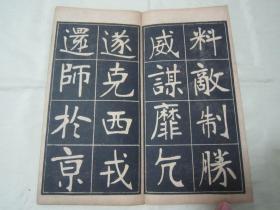 料敵制勝
威謀靡亢
遂克西戎
還師於京